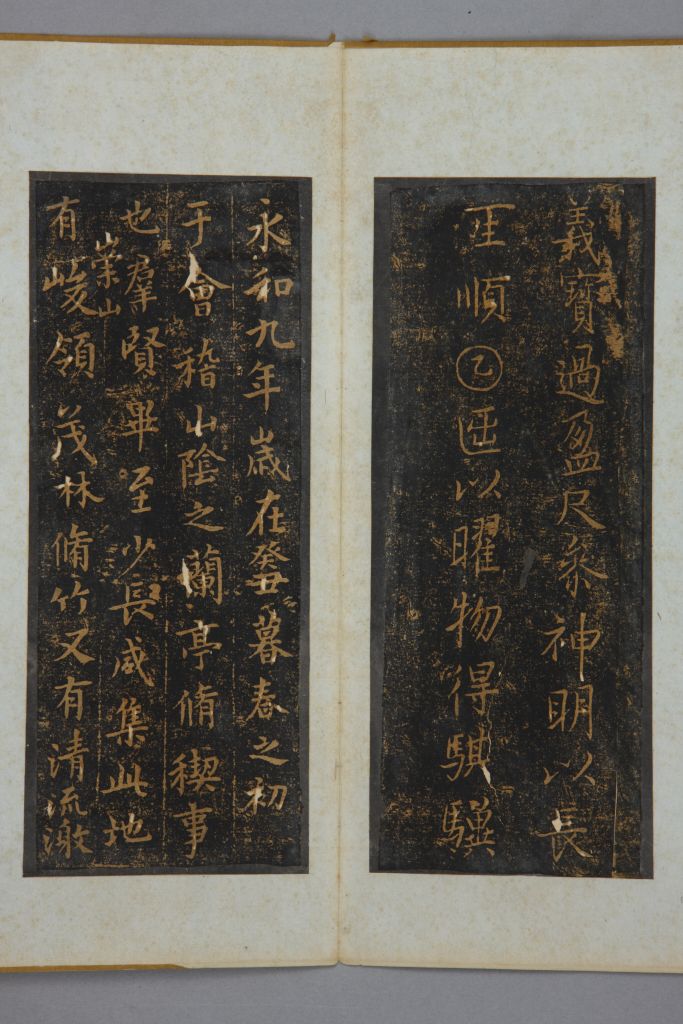 義寶過盈尺參神明以長
順乙以曜物得騏驥
永和九年歲在癸丑暮春之初
于會稽山陰之蘭亭脩稧事
也羣賢畢至少長咸集此地
有崇山峻領茂林脩竹又有清流激